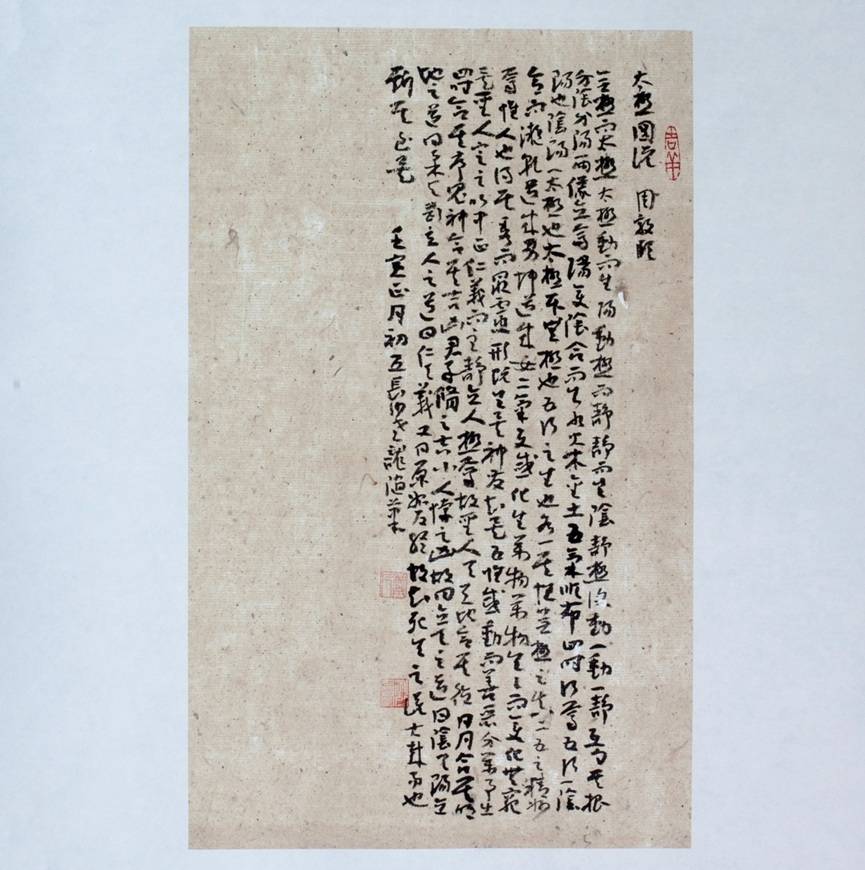 太極圖說 周敦頤
無極而太極太極動而生陽動極而靜靜而生陰靜極復動一動一靜互爲其根
分陰分陽兩儀立焉陽變陰合而生水火木金土五氣順布四時行焉五行一陰
陽也陰陽一太極也太極本無極也五行之生也各一其性無極之真二五之精妙
合而凝乾道成男坤道成女二氣交感化生萬物萬物生生而變化無窮
焉惟人也得其秀而最靈形既生矣神發知矣五性感動而善惡分萬事出
矣聖人定之以中正仁義而主靜立人極焉故聖人與天地合其德日月合其明
四時合其序鬼神合其吉凶君子脩之吉小人悖之凶故曰立天之道曰陰與陽立
地之道曰柔與剛立人之道曰仁與義又曰原始反終故知死生之說大哉易也
斯其至矣 壬寅正月初五長沙